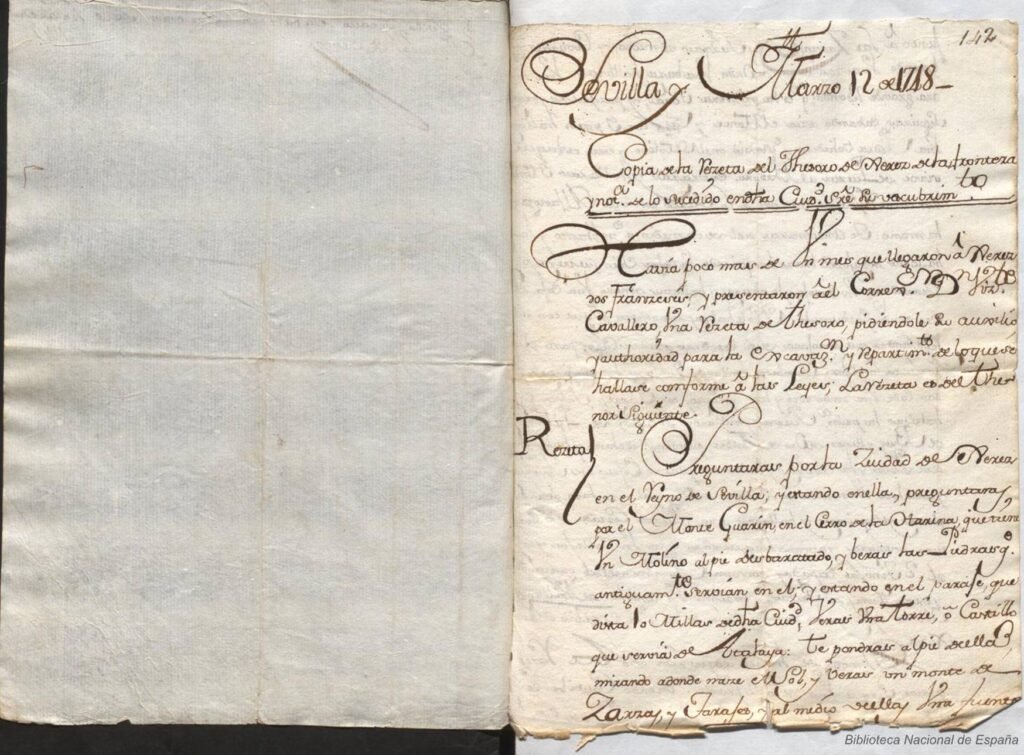 142
Sevilla y Marzo 12 de 1748-
Copia de la Rezeta del Thesoro de Xerez de la frontera
y not.ª de lo suzedido en dha Ciud.d sre su descubrim.to
Havia poco mas de Un mes que llegaron â Xerez
dos Franzeses, y presentaron â el Correx.or
Cavallero, Vna Rezeta de thesoro, pidiendole su auxilio
y authoridad para la excavaz.n y repartim.to de lo que se
hallase comforme â las Leyes; La Rezeta es del The
nor siguiente.
Rezeta
Preguntaras por la Ziudad de Xerez
en el Reyno de Sevilla; y estando en ella, preguntaras
por el Monte Guarin, en el Cerro de la Harina, que tiene
Vn Molino al pie desbaratado, y beras las Piedras q.
antiguam.te servian en el; y estando en el paraje, que
dista 10 Millas de dha Ciud.d Veras Vna Torre, ô Castillo
que servia de Atalaya: te pondras al pie de ella
mirando adonde naze el Sol, y veras un monte de
Zarzas, y Tarajes, y al medio de ellas Vna fuente
Biblioteca Nacional de España